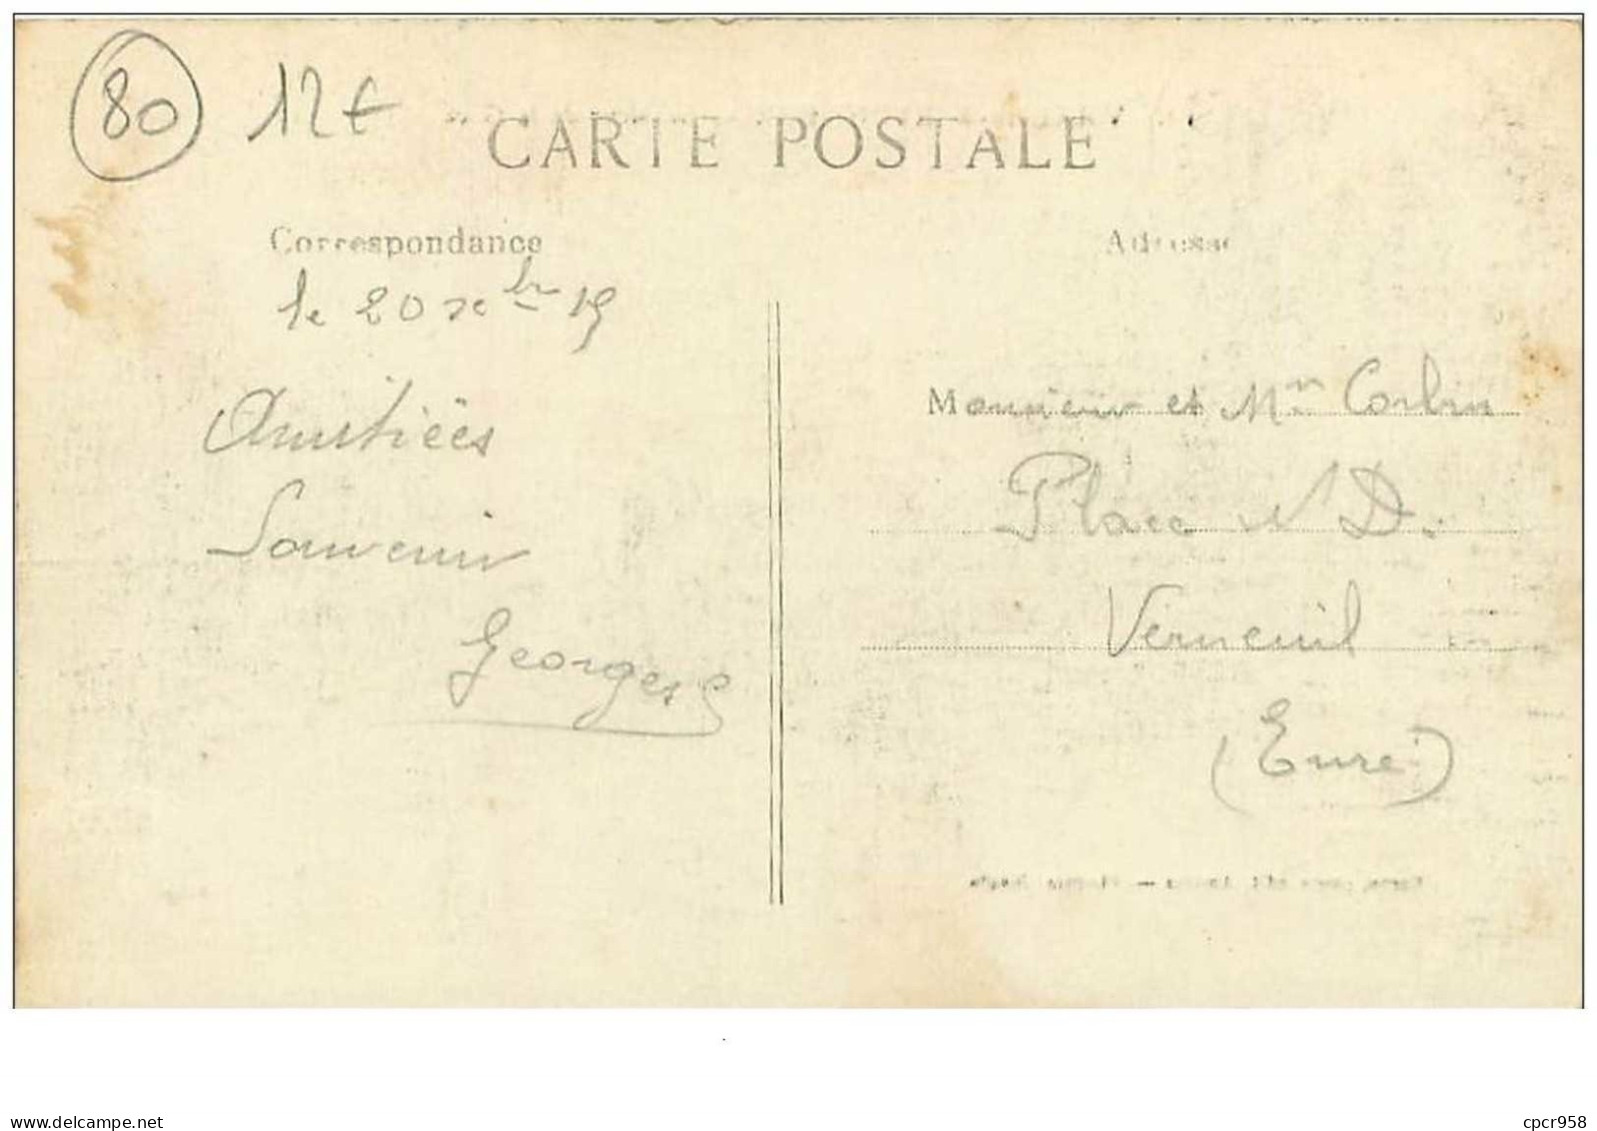 80 12€
CARTE POSTALE
Correspondance
Adresse
le 20 Xbre 15
Amitiées
Souvenir
Georges
Monsieur et Mme Corbin
Place N D.
Verneuil
(Eure)
delcampe.net
cpcr958